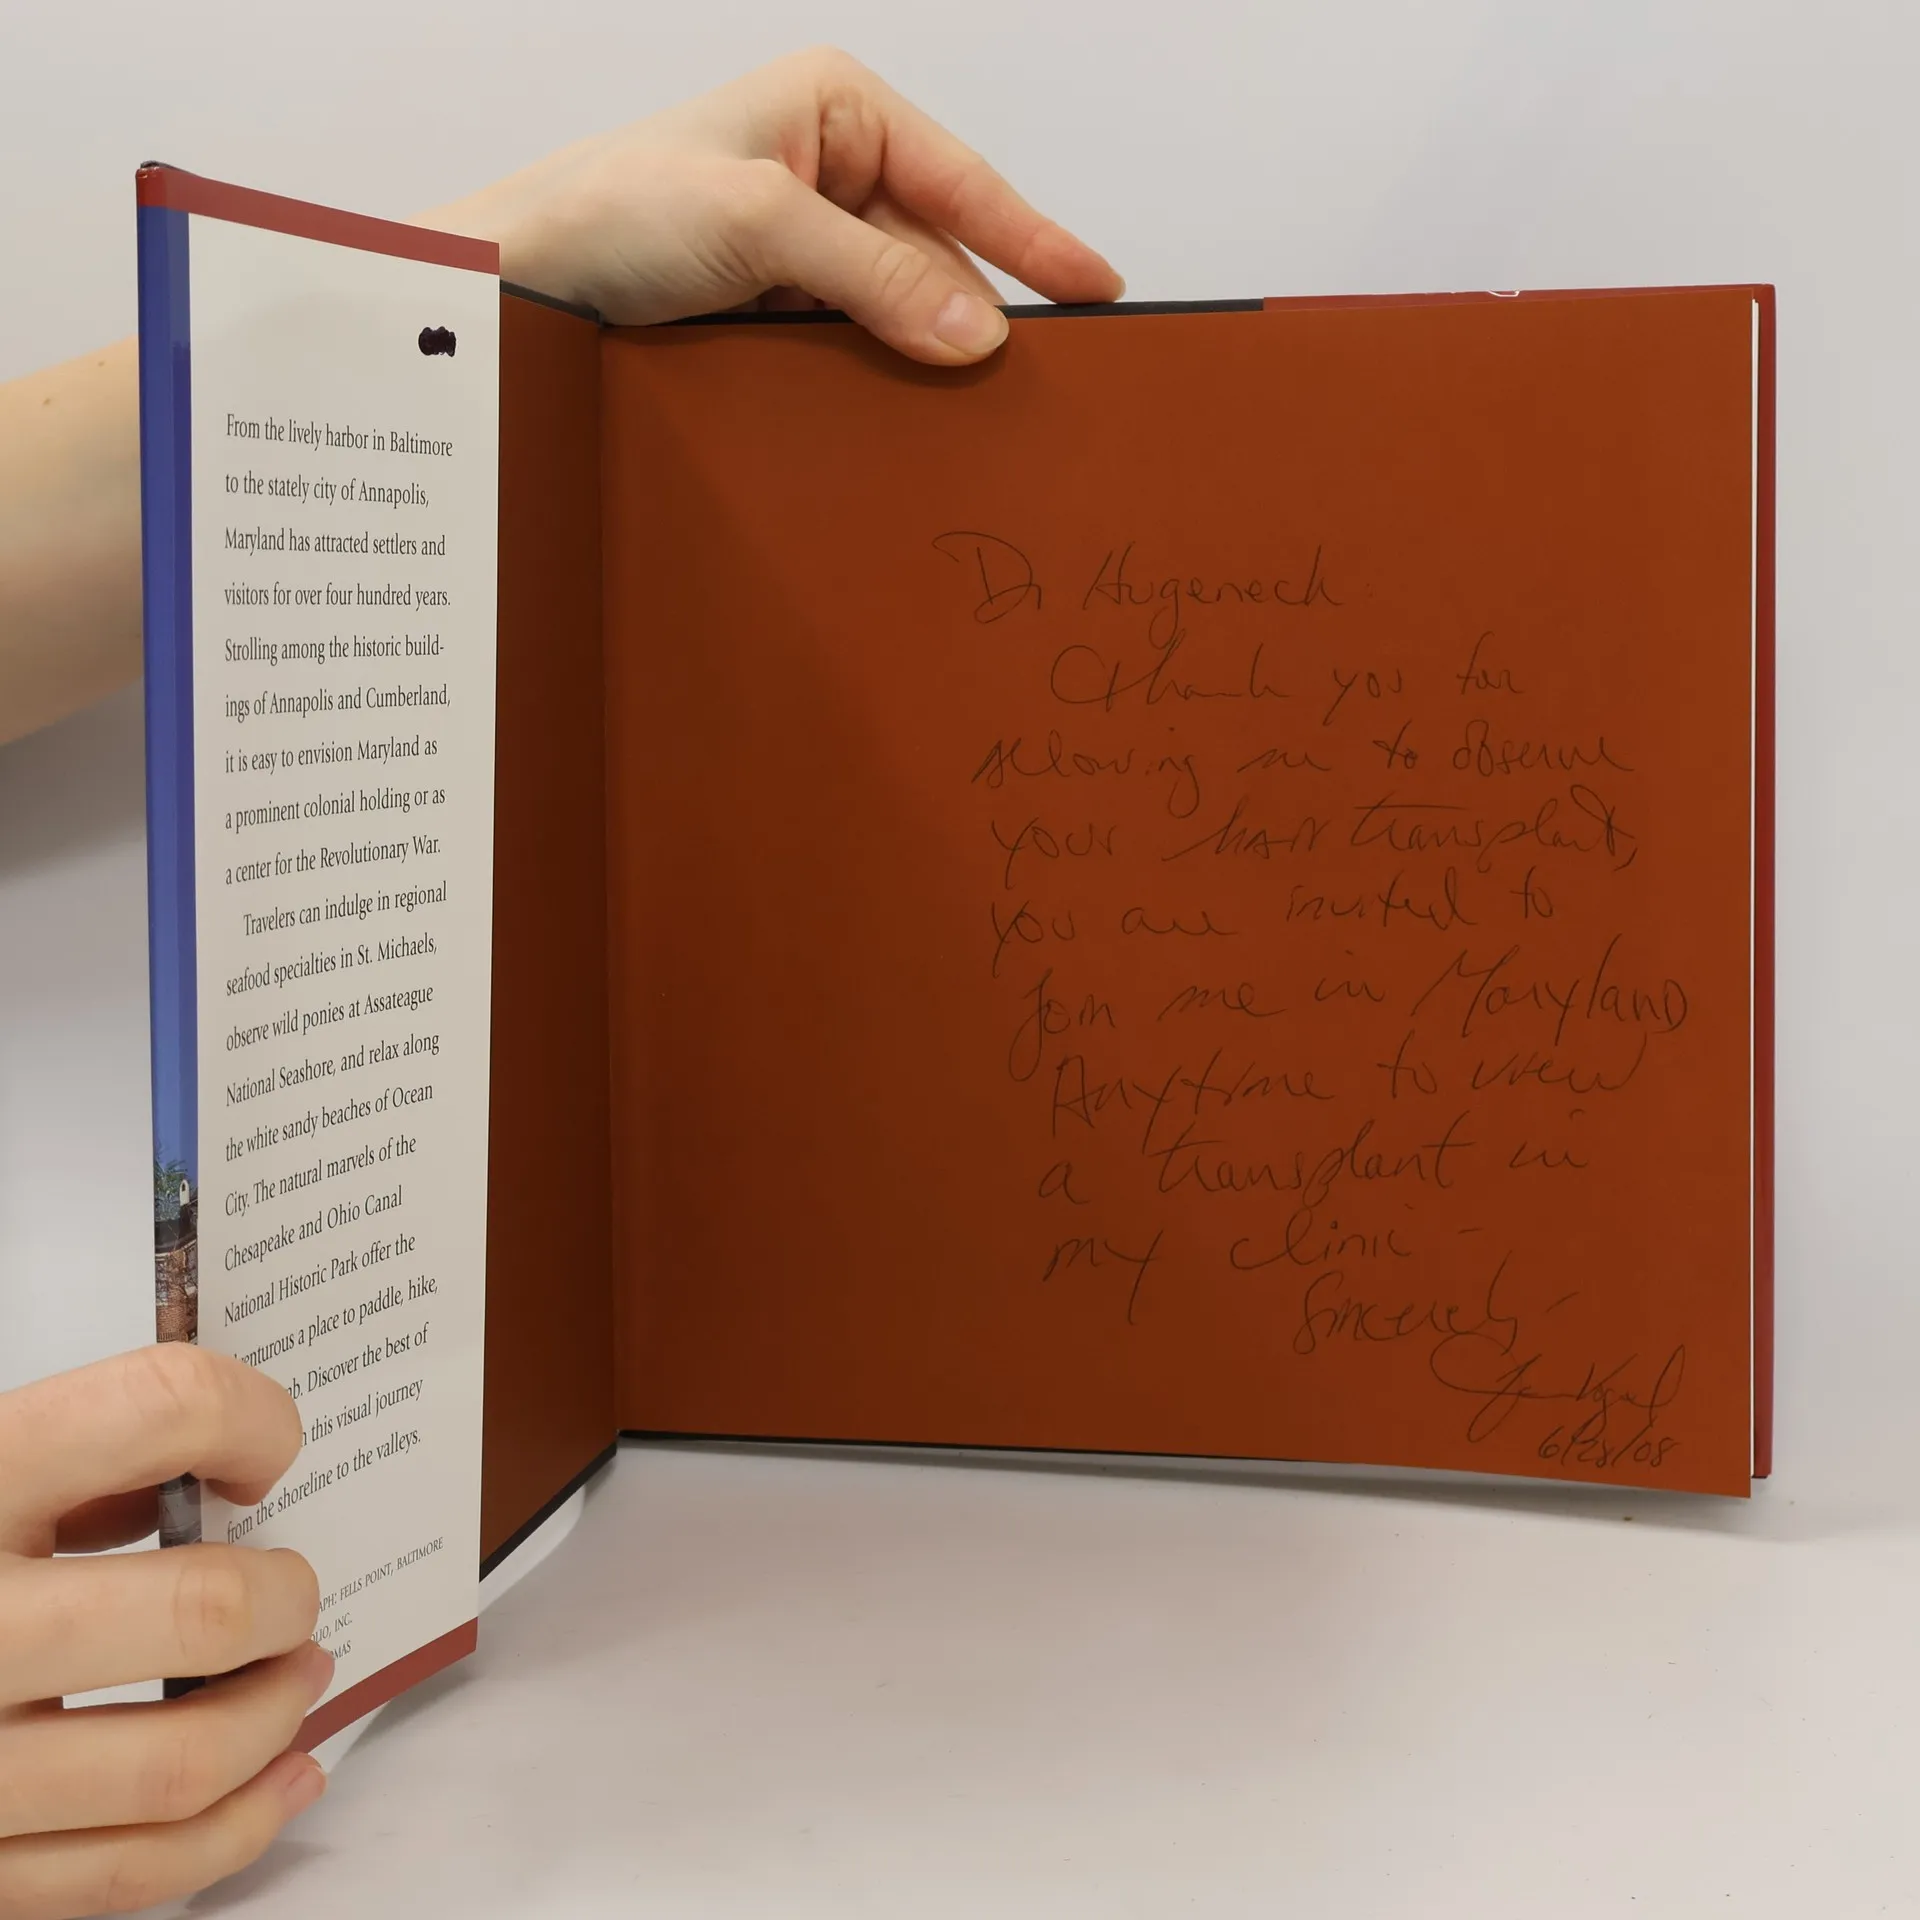 From the lively harbor in Baltimore
to the stately city of Annapolis,
Maryland has attracted settlers and
visitors for over four hundred years.
Strolling among the historic build-
ings of Annapolis and Cumberland,
it is easy to envision Maryland as
a prominent colonial holding or as
a center for the Revolutionary War.
Travelers can indulge in regional
seafood specialties in St. Michaels,
observe wild ponies at Assateague
National Seashore, and relax along
the white sandy beaches of Ocean
City. The natural marvels of the
Chesapeake and Ohio Canal
National Historic Park offer the
a place to paddle, hike,
Discover the best of
this visual journey
from the shoreline to the valleys.
FELLS POINT, BALTIMORE
INC.
Dr Hugeneck
Thank you for
allowing me to observe
your hair transplant,
you are invited to
Join me in Maryland
Anytime to view
a transplant in
my clinic -
Sincerely
Vogel
6/28/08